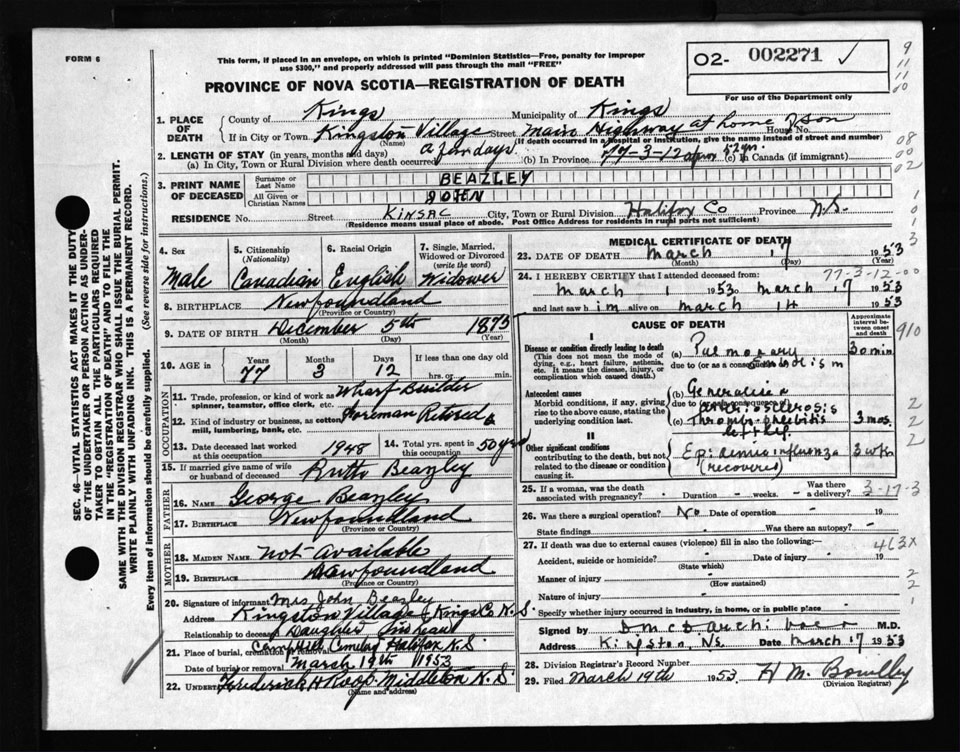 FORM 6
This form, if placed in an envelope, on which is printed "Dominion Statistics—Free, penalty for improper
use $300," and properly addressed will pass through the mail "FREE"
02- 002271 ✓
For use of the Department only
PROVINCE OF NOVA SCOTIA—REGISTRATION OF DEATH
9
11
11
00
08
00
02
1. PLACE OF DEATH
County of Kings Municipality of Kings
If in City or Town Kingston Village Street Main Highway at home of son House No.
(Name) (If death occurred in a hospital or institution, give the name instead of street and number)
2. LENGTH OF STAY (in years, months and days)
(a) In City, Town or Rural Division where death occurred a few days (b) In Province 77-3-12 (c) In Canada (if immigrant)
3. PRINT NAME OF DECEASED
Surname or Last Name BEAZLEY
All Given or Christian Names JOHN
RESIDENCE No. Street KINSAC City, Town or Rural Division Halifax Co Province N.S.
(Residence means usual place of abode. Post Office Address for residents in rural parts not sufficient)
4. Sex Male
5. Citizenship (Nationality) Canadian
6. Racial Origin English
7. Single, Married, Widowed or Divorced (write the word) Widower
8. BIRTHPLACE Newfoundland
(Province or Country)
9. DATE OF BIRTH December 5th 1875
(Month) (Day) (Year)
10. AGE in Years 77 Months 3 Days 12 If less than one day old hrs. or min.
OCCUPATION
11. Trade, profession, or kind of work as spinner, teamster, office clerk, etc. Wharf Builder
12. Kind of industry or business, as cotton mill, lumbering, bank, etc. Foreman Retired
13. Date deceased last worked at this occupation 1948
14. Total yrs. spent in this occupation 50 yrs
15. If married give name of wife or husband of deceased Ruth Beazley
FATHER
16. Name George Beazley
17. Birthplace Newfoundland
(Province or Country)
MOTHER
18. MAIDEN NAME not available
19. BIRTHPLACE Newfoundland
(Province or Country)
20. Signature of informant Mrs John Beazley
Address Kingston Village, Kings Co N.S.
Relationship to deceased Daughter in law
21. Place of burial, cremation or removal Camphill Cemetery Halifax N.S.
Date of burial or removal March 19th 1953
22. UNDERTAKER Frederick H Roop Middleton N.S.
(Name and address)
MEDICAL CERTIFICATE OF DEATH
23. DATE OF DEATH March 17 1953
(Month) (Day) (Year)
24. I HEREBY CERTIFY that I attended deceased from: 77-3-12-00
March 1 1953 to March 17 1953
and last saw him alive on March 14 1953
CAUSE OF DEATH
Approximate interval between onset and death
I
Disease or condition directly leading to death
(This does not mean the mode of dying, e.g., heart failure, asthenia, etc. It means the disease, injury, or complication which caused death.)
(a) Pulmonary embolism 30 min
due to (or as a consequence of)
Antecedent causes
Morbid conditions, if any, giving rise to the above cause, stating the underlying condition last.
(b) Generalized arteriosclerosis
due to (or as a consequence of)
(c) Thrombo-phlebitis left leg 3 mos.
II
Other significant conditions
contributing to the death, but not related to the disease or condition causing it.
Epidemic influenza (recovered) 3 wks
910
2
2
2
25. If a woman, was the death associated with pregnancy? - Duration - weeks. - Was there a delivery? 3-17-3
26. Was there a surgical operation? No Date of operation - 19
State findings Was there an autopsy? -
27. If death was due to external causes (violence) fill in also the following:— 463X
Accident, suicide or homicide? - Date of injury - 19
(State which)
Manner of injury -
(How sustained)
Nature of injury -
Specify whether injury occurred in industry, in home, or in public place -
Signed by M.D.
Address Kingston, NS. Date March 17 1953
28. Division Registrar's Record Number
29. Filed March 19th 1953
(Division Registrar)
SEC. 46—VITAL STATISTICS ACT MAKES IT THE DUTY
OF THE UNDERTAKER OR PERSON ACTING AS UNDER-
TAKER TO OBTAIN ALL THE PARTICULARS REQUIRED
IN THE "REGISTRATION OF DEATH" AND TO FILE THE
SAME WITH THE DIVISION REGISTRAR WHO SHALL ISSUE THE BURIAL PERMIT.
WRITE PLAINLY WITH UNFADING INK. THIS IS A PERMANENT RECORD.
Every item of information should be carefully supplied. (See reverse side for instructions.)